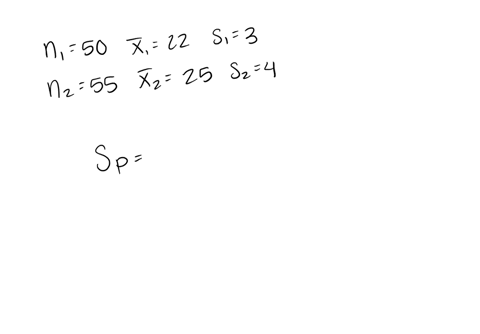 n₁=50 x̄₁=22 S₁=3
n₂=55 x̄₂=25 S₂=4
Sp=